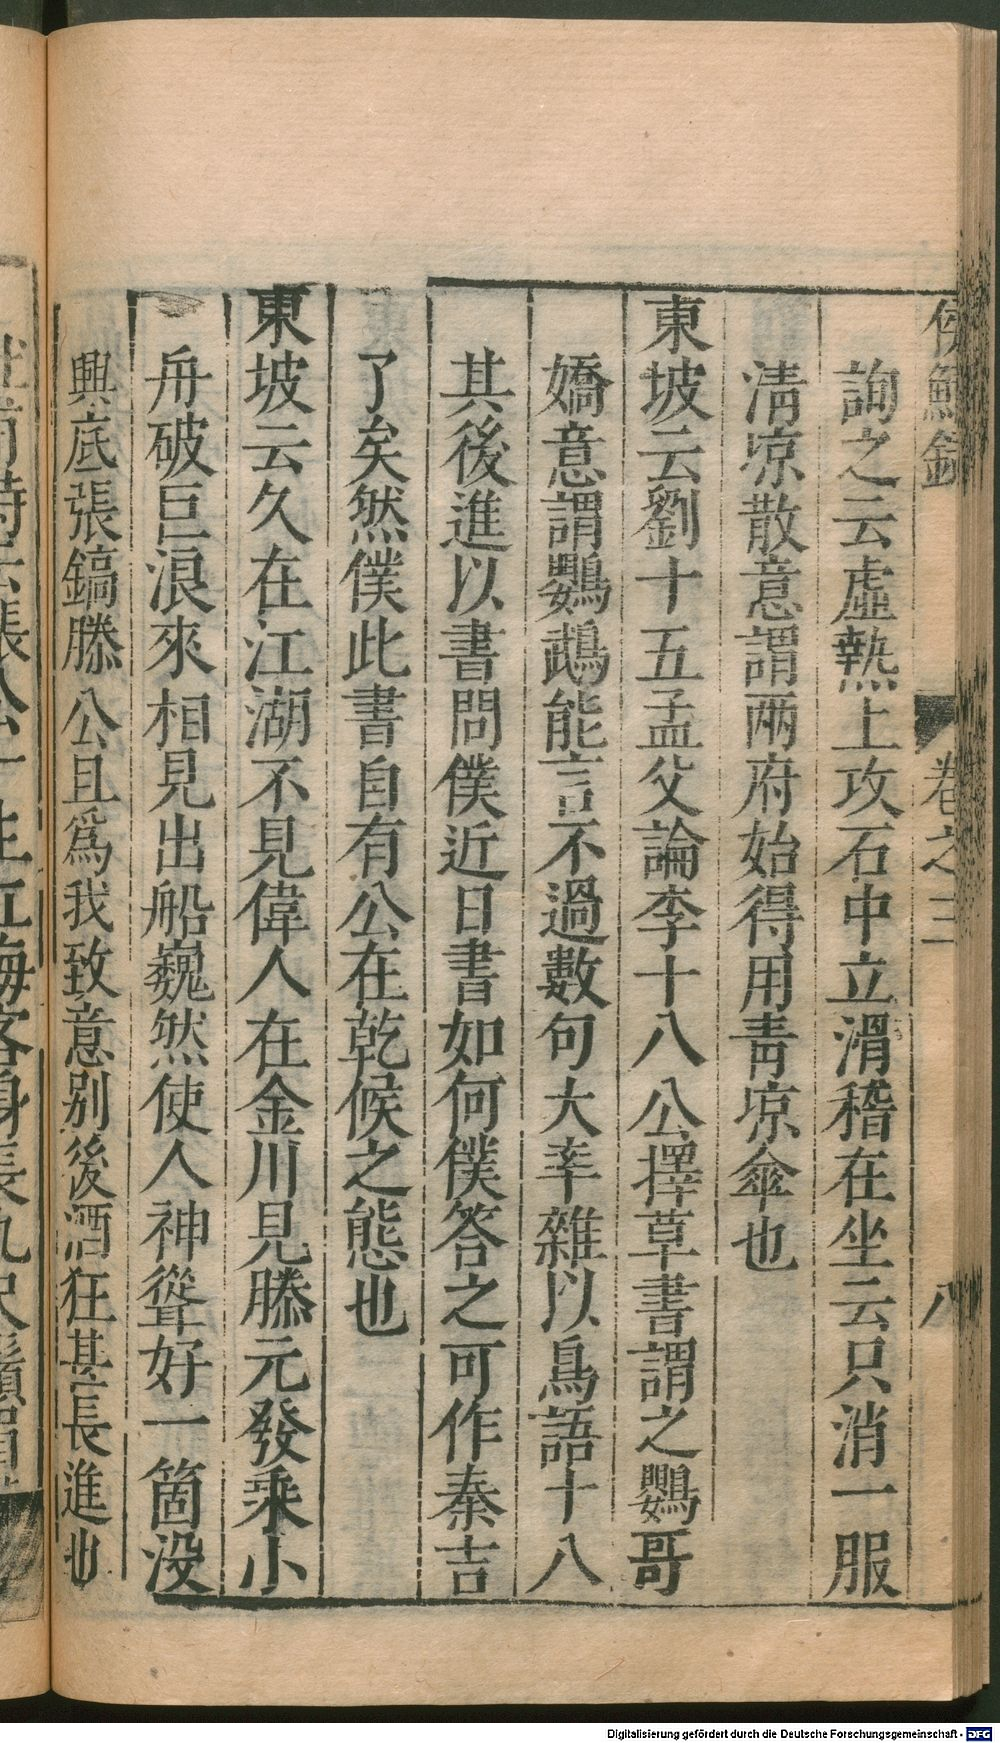 侯鯖錄 卷之三 八
詢之云虛熱上攻石中立滑稽在坐云只消一服
清凉散意謂兩府始得用青凉傘也
東坡云劉十五孟父論李十八公擇草書謂之鸚哥
嬌意謂鸚鵡能言不過數句大率雜以鳥語十八
其後進以書問僕近日書如何僕答之可作秦吉
了矣然僕此書自有公在乾候之態也
東坡云久在江湖不見偉人在金川見滕元發乘小
舟破巨浪來相見出船巍然使人神聳好一箇没
興底張鎬滕公且爲我致意别後酒狂甚長進也
張公一生江海客身長九尺鬚眉
Digitalisierung gefördert durch die Deutsche Forschungsgemeinschaft - DFG